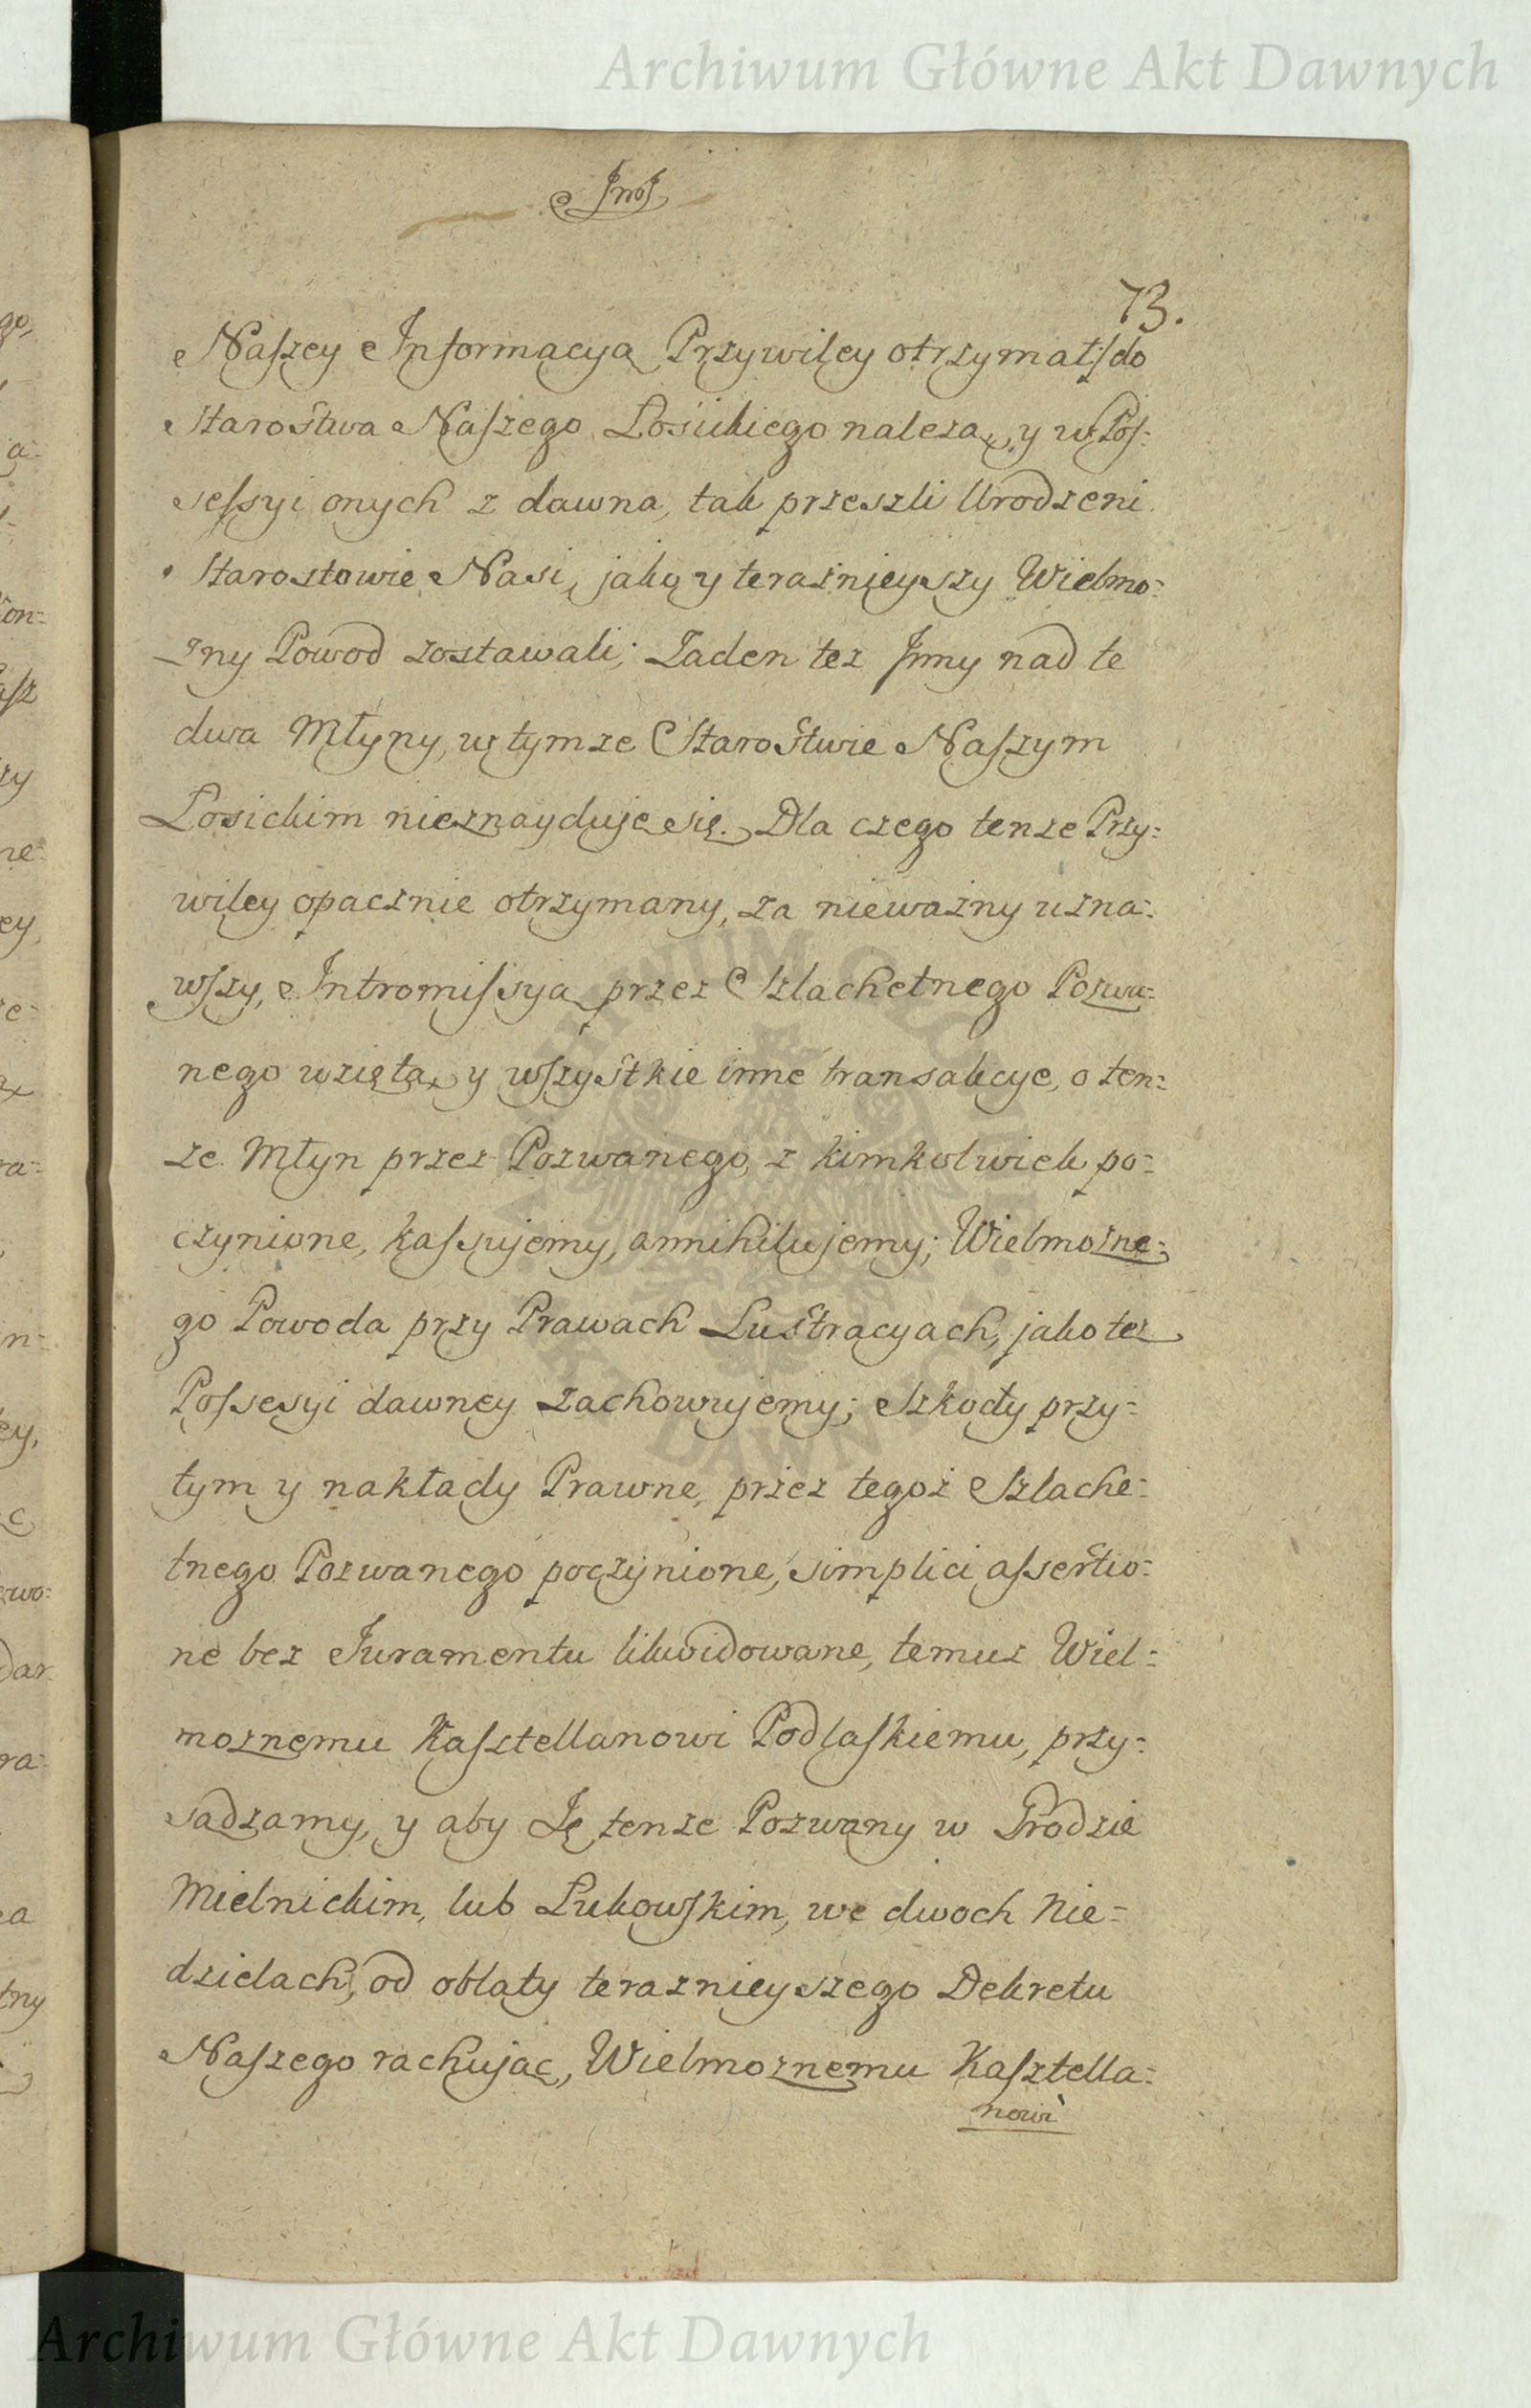 Archiwum Główne Akt Dawnych
73.
Naszey Informacyą Przywiley otrzymał, do
Starostwa Naszego Losickiego należą, y w Pos=
sessyi onych z dawna, tak przeszli Urodzeni
Starostowie Nasi, jako y teraźnieyszy Wielmo=
żny Powod zostawali; Zaden tez Jnny nad te
dwa Młyny, w tymze Starostwie Naszym
Losickim nieznayduje się. Dla czego tenze Przy=
wiley opacznie otrzymany, za nieważny uzna=
wszy, Intromissyą przez Szlachetnego Pozwa=
nego wziętą, y wszystkie inne transakcye, o ten=
ze Młyn przez Pozwanego, z kimkolwiek po=
czynione, kassujemy, annihilujemy; Wielmozne=
go Powoda przy Prawach Lustracyach, jako tez
Possesyi dawney zachowujemy; Szkody przy=
tym y nakłady Prawne, przez tegoż Szlache=
tnego Pozwanego poczynione, simplici assertio=
ne bez Juramentu likwidowane, temuz Wiel=
moznemu Kasztellanowi Podlaskiemu, przy=
sądzamy, y aby Ię tenze Pozwany w Grodzie
Mielnickim, lub Łukowskim, we dwoch Nie=
dzielach, od oblaty teraznieyszego Dekretu
Naszego rachując, Wielmoznemu Kasztella=
nowi
Archiwum Główne Akt Dawnych